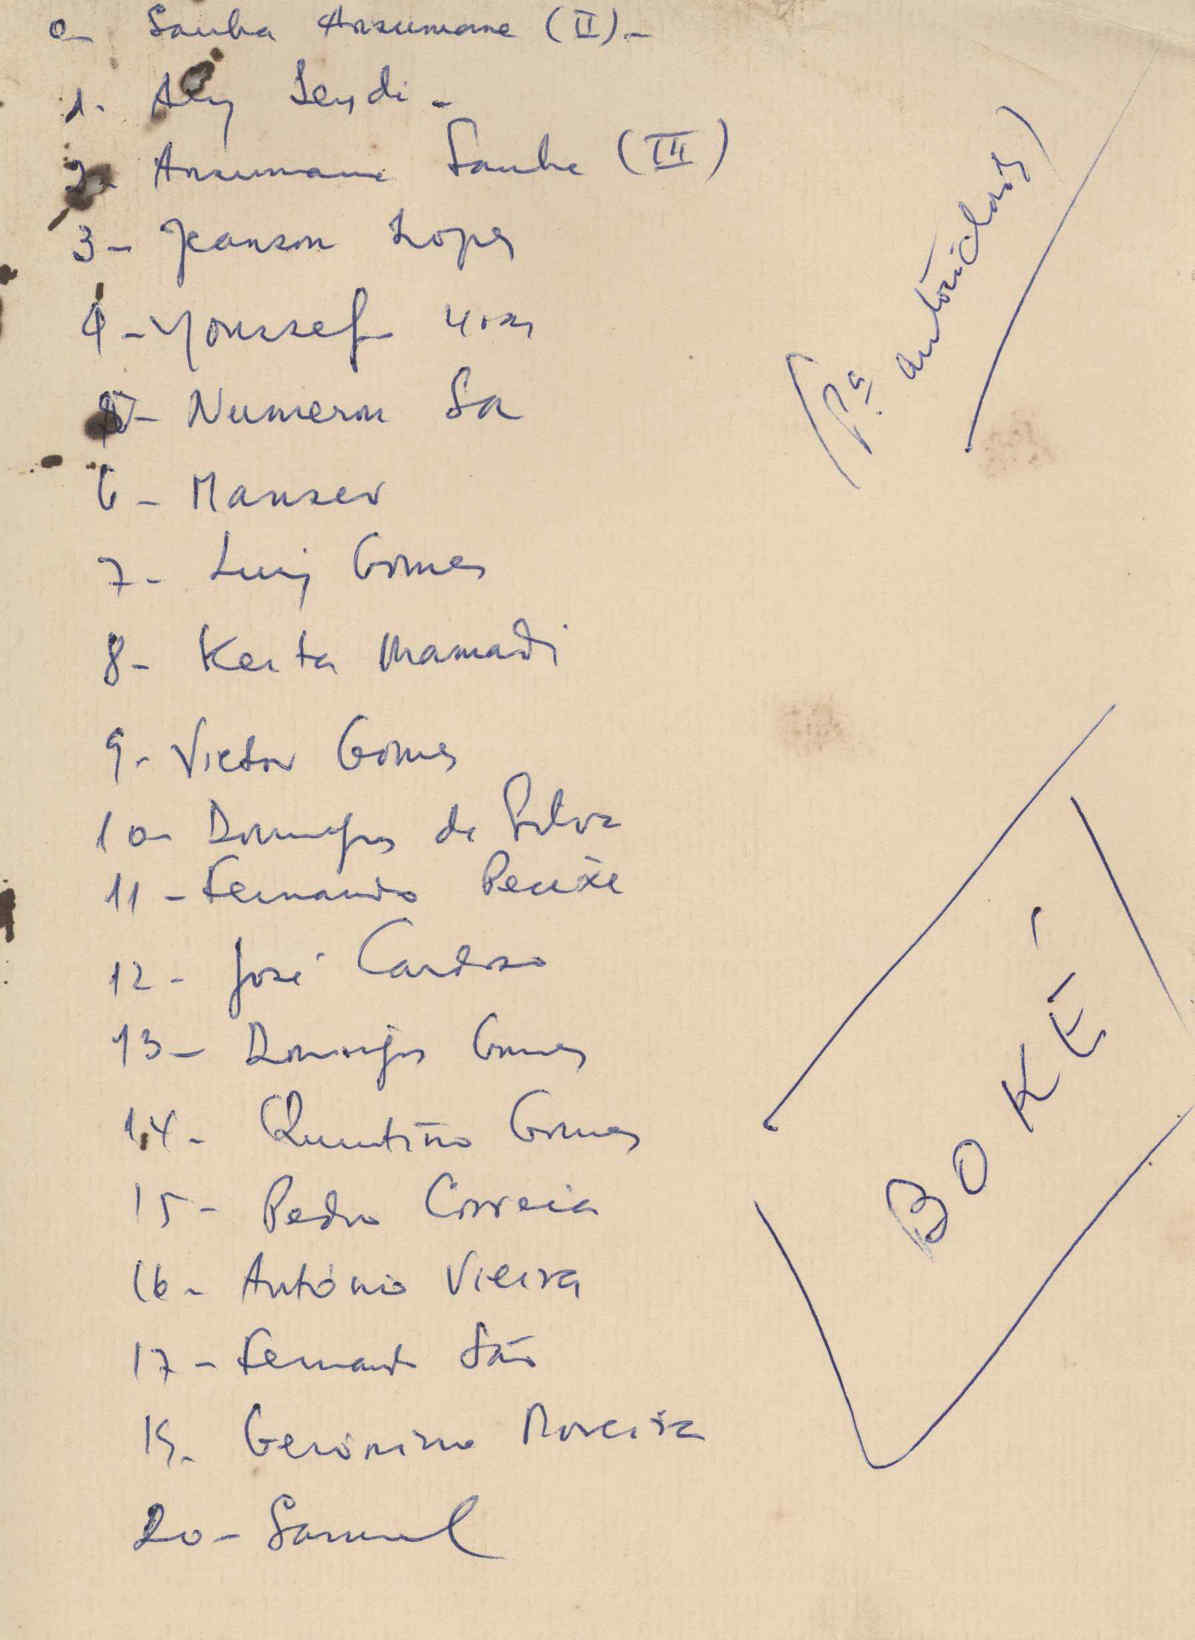 0- Sanha Ansumane (II).-
1- Aly Seydi.-
2- Ansumane Sanha (III)
3- Jeanson Lopes
4- Youssef
5- Numeron Sa
6- Mansev
7- Luiz Gomes
8- Keita Mamadi
9- Victor Gomes
10- Domingos da Silva
11- Fernando Peixe
12- José Cardoso
13- Domingos Gomes
14- Quintino Gomes
15- Pedro Correia
16- António Vieira
17- Fernando Sáo
19- Gerónimo Moreira
20- Samuel
(Pª autoridades)
BOKÉ